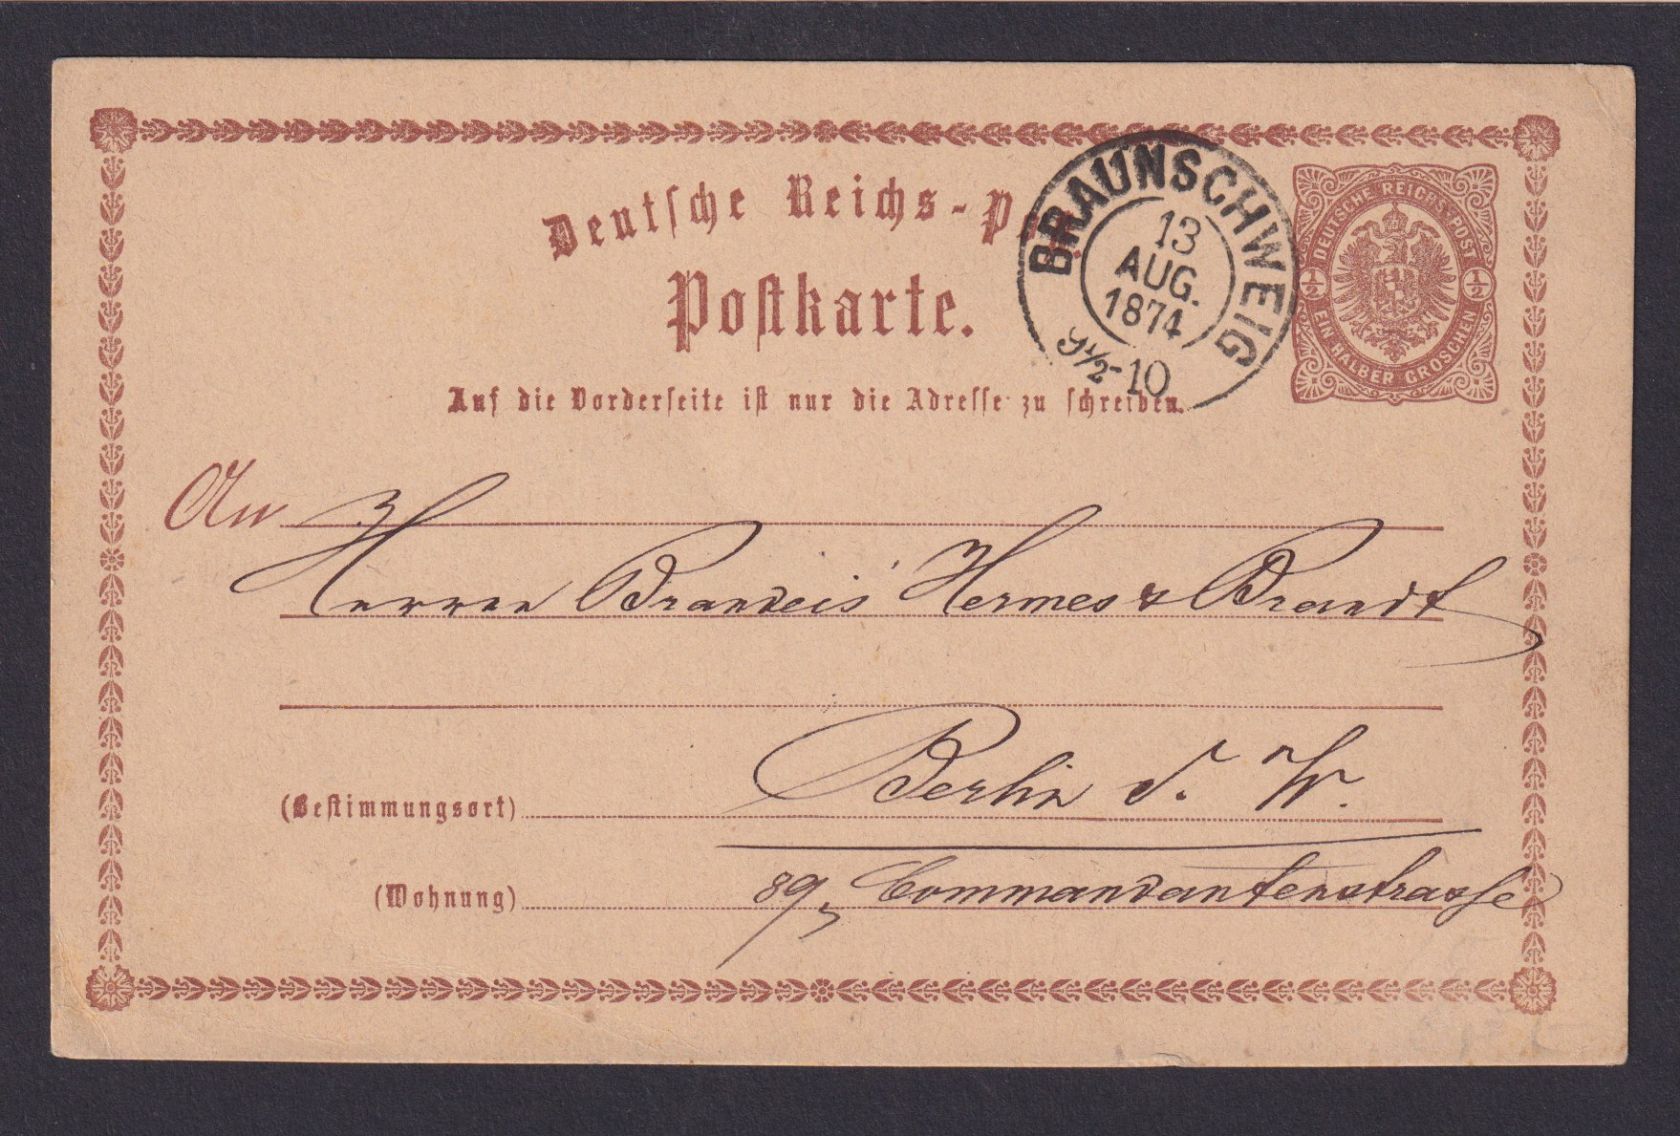 Deutsche Reichs-P
Postkarte.
BRAUNSCHWEIG
13
AUG.
1874
9½-10
DEUTSCHE REICHS-POST
½ ½
EIN HALBER GROSCHEN
Auf die Vorderseite ist nur die Adresse zu schreiben.
An
Herren Brandeis Hermes & Brandt
Berlin S. W.
(Bestimmungsort)
(Wohnung) 89, Commandantenstrasse